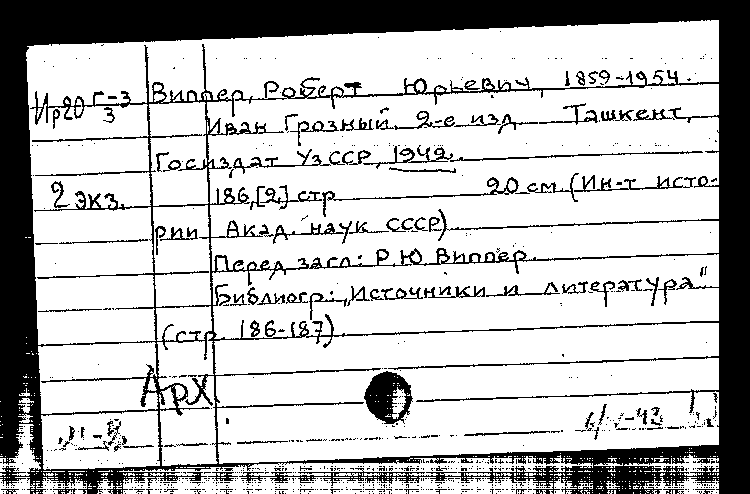 Ир20 Г-3/3 Виппер, Роберт Юрьевич, 1859-1954.
Иван Грозный. 2-е изд Ташкент,
Госиздат УзССР, 1942.
2 экз. 186,[2] стр 20 см (Ин-т исто-
рии Акад. наук СССР)
Перед загл: Р.Ю. Виппер.
Библиогр: „Источники и литература"
(стр 186-187).
Арх